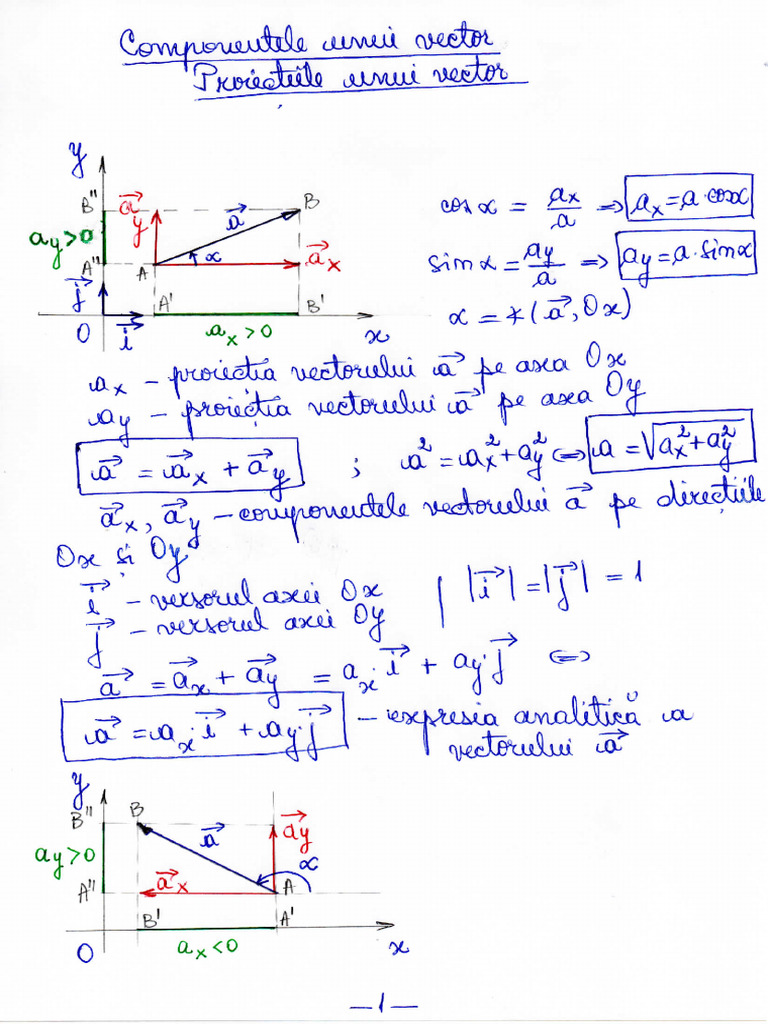 Componentele unui vector
Proiecțiile unui vector
y
B" a⃗y a⃗ B
ay>0
A" A α a⃗x
j⃗ A' B'
O i⃗ ax>0 x
cos α = ax/a ⇒ ax=a·cosα
sin α = ay/a ⇒ ay=a·sinα
α = ∢(a⃗, Ox)
ax – proiecția vectorului a⃗ pe axa Ox
ay – proiecția vectorului a⃗ pe axa Oy
a⃗ = a⃗x + a⃗y ; a² = ax²+ay² ⇔ a = √(ax²+ay²)
a⃗x, a⃗y – componentele vectorului a⃗ pe direcțiile
Ox și Oy
i⃗ – versorul axei Ox | |i⃗| = |j⃗| = 1
j⃗ – versorul axei Oy
a⃗ = a⃗x + a⃗y = ax·i⃗ + ay·j⃗ ⇔
a⃗ = ax·i⃗ + ay·j⃗ – expresia analitică a
vectorului a⃗
y
B" B a⃗ a⃗y
ay>0 α
A" a⃗x A
B' A'
O ax<0 x
–1–